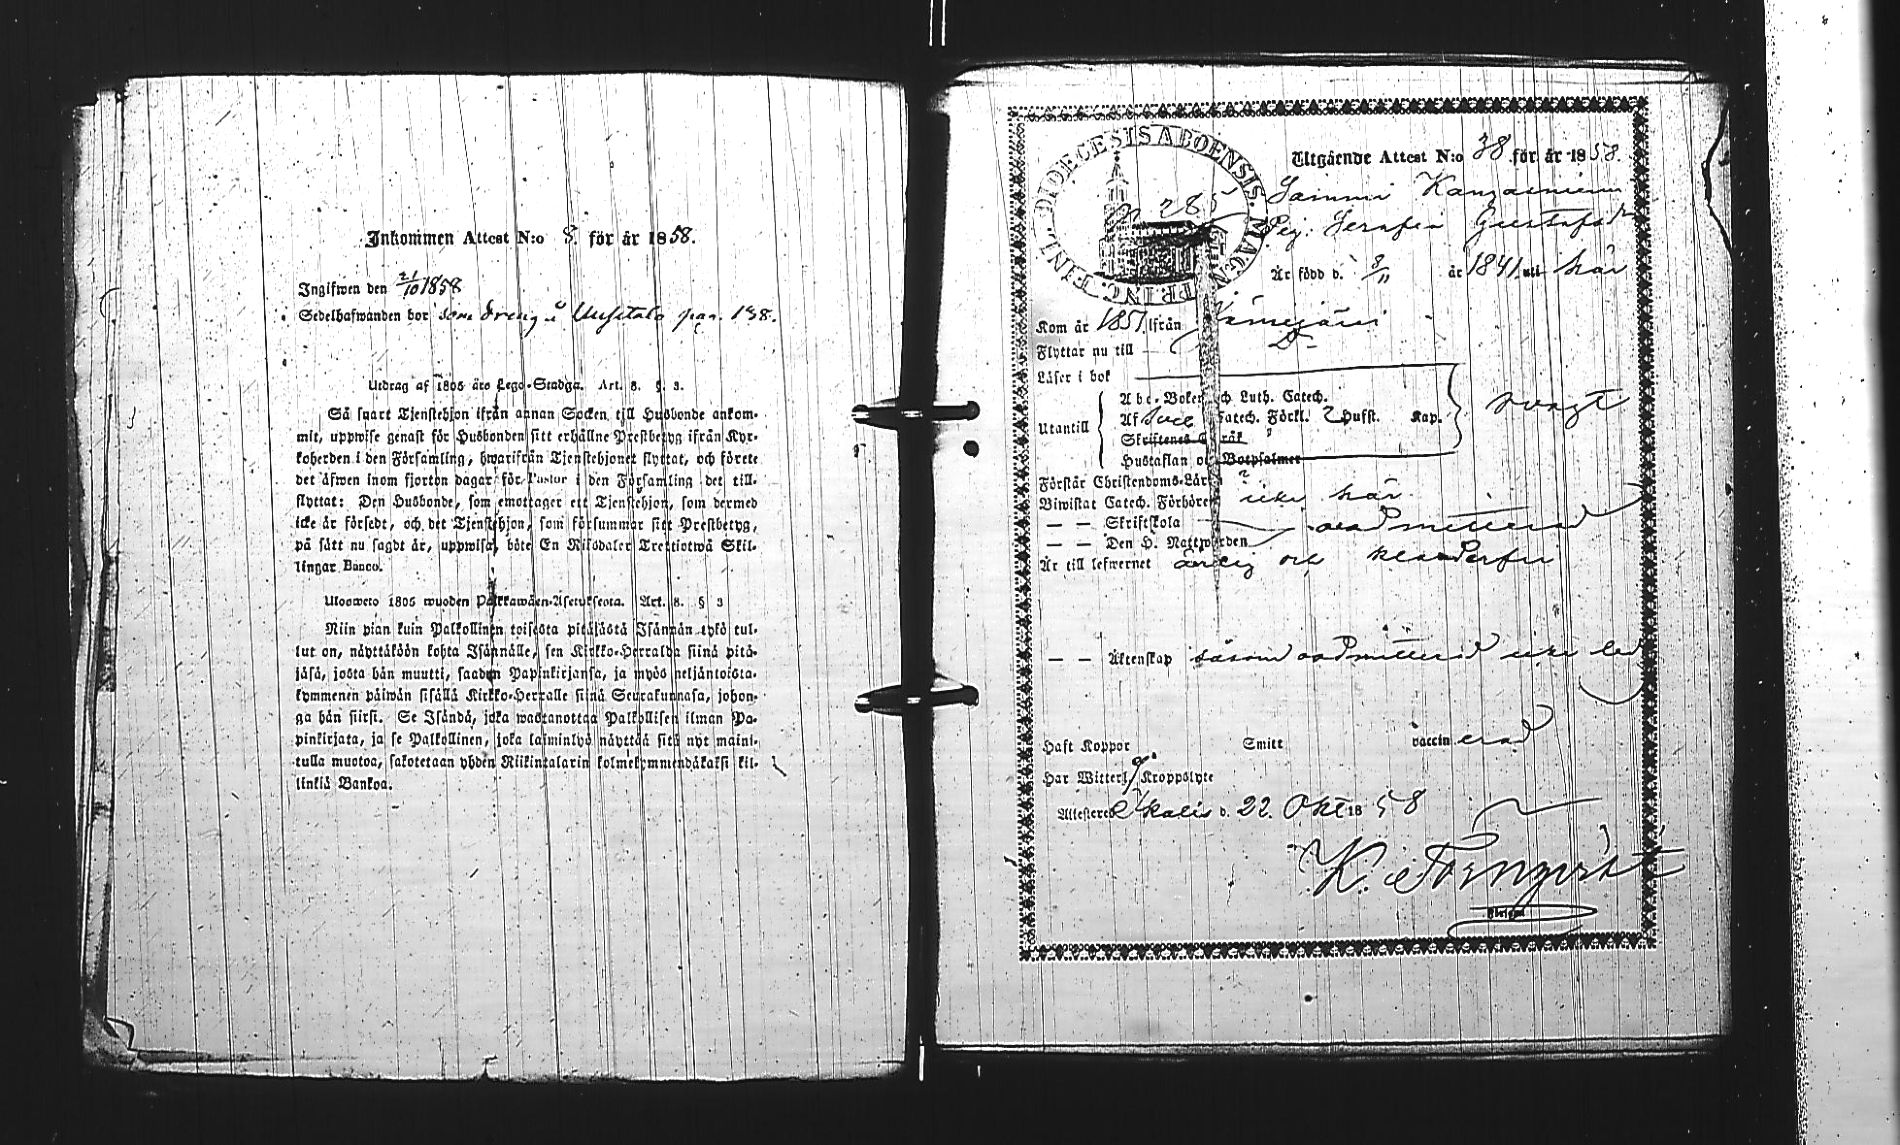 Inkommen Attest N:o 8. för år 1858.
Ingifwen den 21/10 1858
Sedelhafwanden bor som dreng å Uusitalo pag. 138.
Utdrag af 1805 års Lego-Stadga. Art. 8. §. 3.
Så snart Tjenstehjon ifrån annan Socken till Husbonde ankom-
mit, uppwise genast för Husbonden sitt erhållne Prestbetyg ifrån Kyr-
koherden i den Församling, hwarifrån Tjenstehjonet flyttat, och förete
det äfwen inom fjorton dagar för Pastor i den Församling det till-
flyttat: Den Husbonde, som emottager ett Tjenstehjon, som dermed
icke är försedt, och det Tjenstehjon, som försummar sitt Prestbetyg,
på sätt nu sagdt är, uppwisa, böte En Riksdaler Trettiotwå Skil-
lingar Banco.
Ulosweto 1805 wuoden Palkkawäen-Asetuksesta. Art. 8. § 3
Niin pian kuin Palkollinen toisesta pitäjästä Isännän tykö tul-
lut on, näyttäköön kohta Isännälle, sen Kirkko-Herralda siinä pitä-
jäsä, josta hän muutti, saadun Papinkirjansa, ja myös neljäntoista-
kymmenen päiwän sisällä Kirkko-Herralle siinä Seurakunnasa, johon-
ga hän siirsi. Se Isändä, joka wastanottaa Palkollisen ilman Pa-
pinkirjata, ja se Palkollinen, joka laiminlyö näyttää sitä nyt maini-
tulla muotoa, sakotetaan yhden Riikintalarin kolmekymmendäkaksi kil-
linkiä Bankoa.
DIOECESIS ABOENSIS. MAGN. PRINC. FINL.
Utgående Attest N:o 38 för år 1858.
285
Gustafs
Är född d. 8/11 år 1841 uti här
Kom år 1857 ifrån Kämejärvi
Flyttar nu till D-
Läser i bok
Utantill
Abc-Boken och Luth. Catech.
Af Svebil Catech. Förkl. 2 Hufst. Kap.
Skriftenes Språk
Hustaflan och Botpsalmer
svagt
Förstår Christendoms-Lär ?
Biwistat Catech. Förhören icke här
— — Skriftskola oadmitterad
— — Den H. Nattwarden
Är till lefwernet ärlig och
— — Äktenskap såsom oadmitterad icke led
Haft Koppor Smitt vaccinerad
Har Witterl. Kroppslyte
Attesterar Ikalis d. 22. Okt 1858
K. Törnqvist